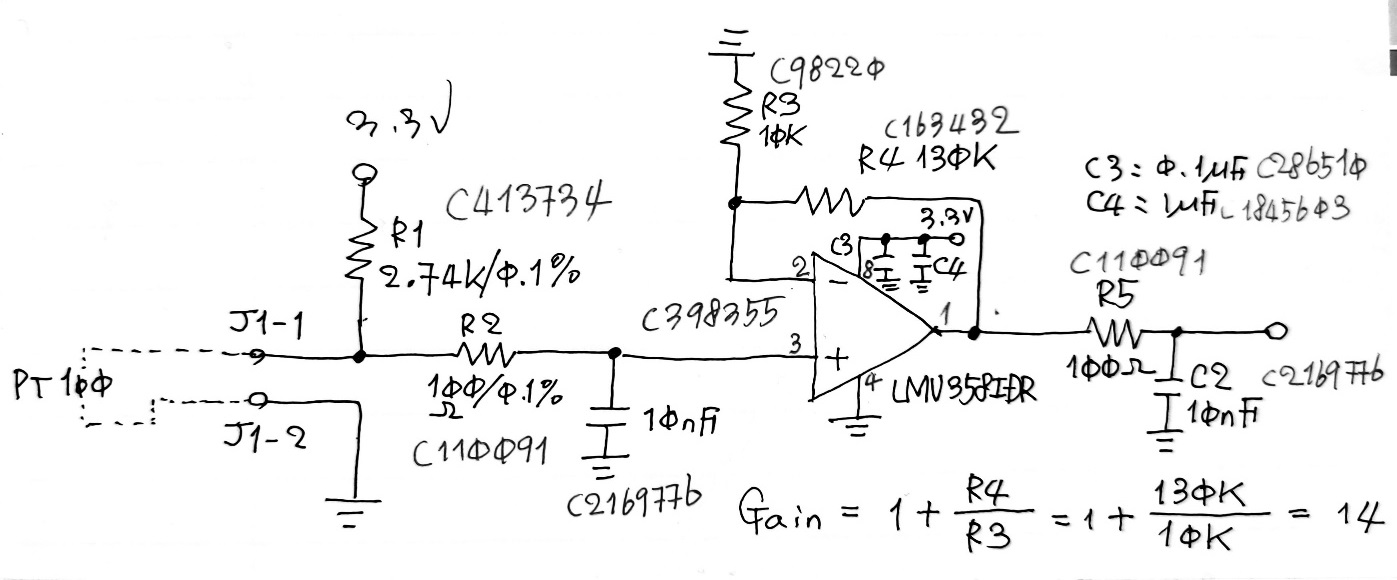 3.3V
C413734
R1
2.74K/0.1%
J1-1
PT100
J1-2
R2
100/0.1%
Ω
C110091
10nF
C216977b
C398355
C98220
R3
10K
C163432
R4 130K
3.3V
C3
C4
8
2
-
3
+
1
4
LMV358IDR
C3 = 0.1µF C286510
C4 = 1µF C1845603
C110091
R5
100Ω
C2
C216977b
10nF
Gain = 1 + R4/R3 = 1 + 130K/10K = 14